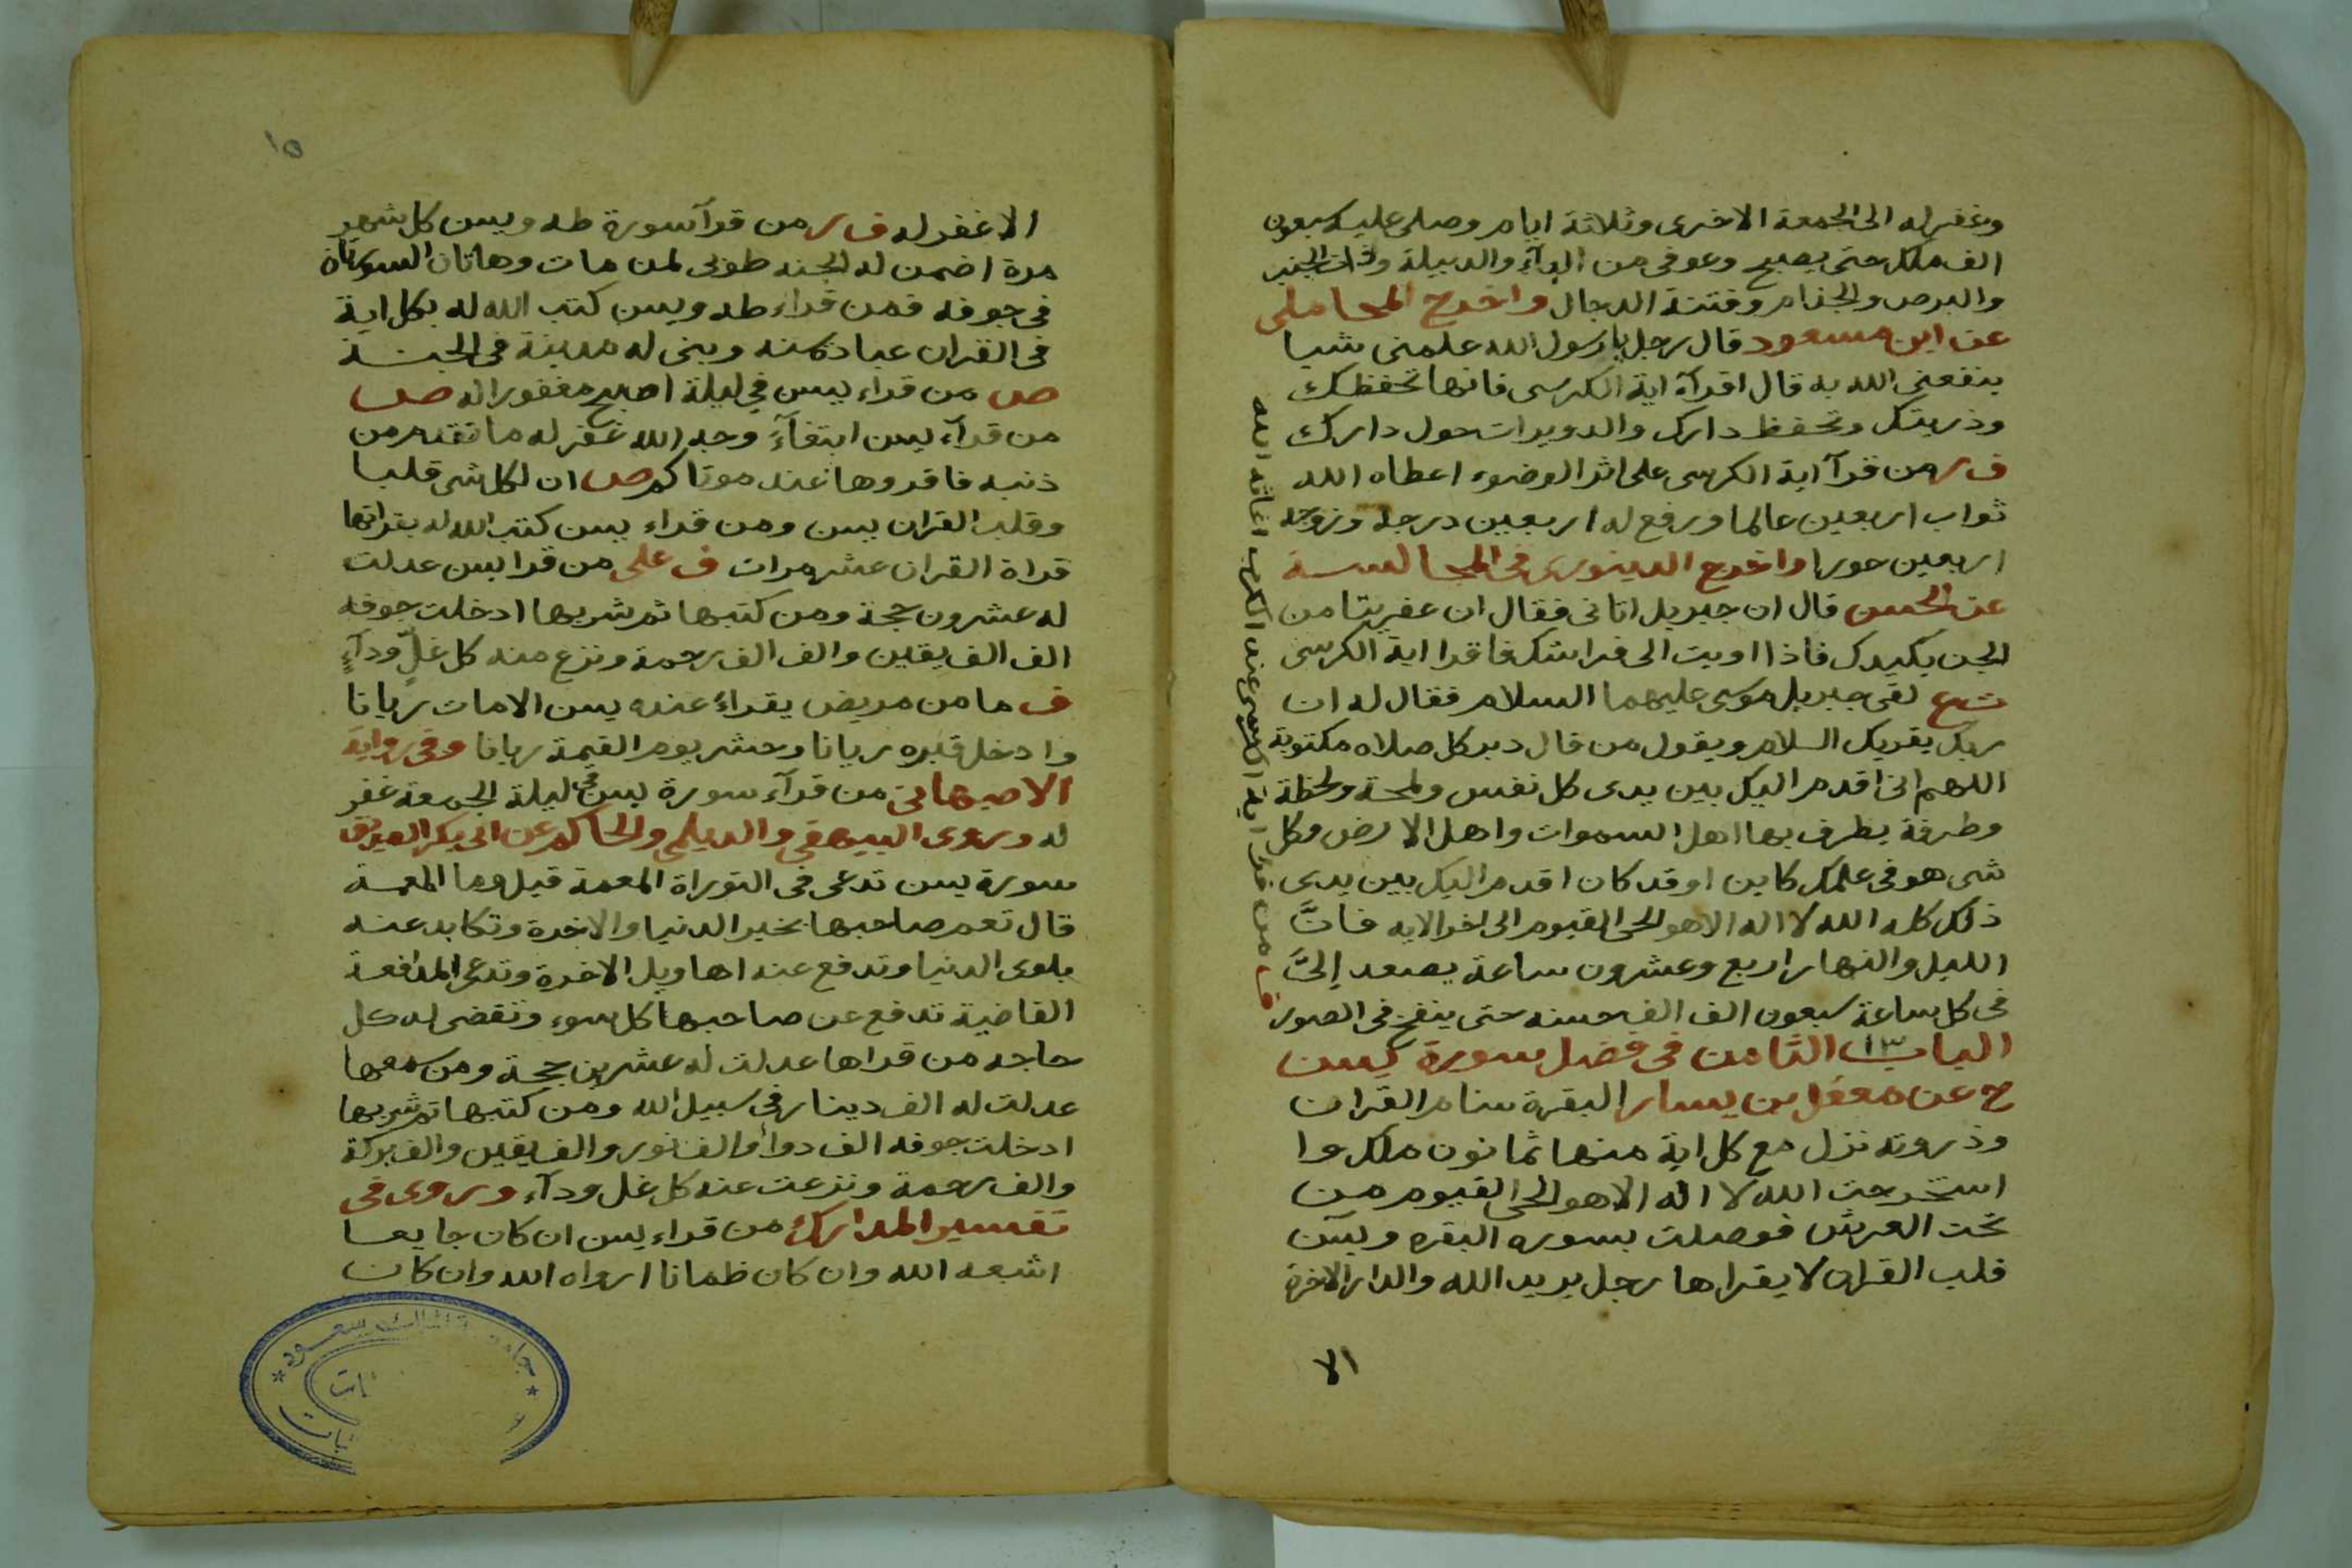 وغفر له الى الجمعة الاخرى وثلاثة ايام وصلى عليه سبعون
الف ملك حتى يصبح وعوفى من الدآء والدبيلة وذات الجنب
والبرص والجذام وفتنة الدجال واخرج المحاملى
عن ابن مسعود قال رجل يا رسول الله علمنى شيا
ينفعنى الله به قال اقرآ اية الكرسى فانها تحفظك
وذريتك وتحفظ دارك والدويرات حول دارك
ف ر من قرآ اية الكرسى على اثر الوضوء اعطاه الله
ثواب اربعين عالما ورفع له اربعين درجة وزوجه
اربعين حورا واخرج الدينورى فى المجالسة
عن الحسن قال ان جبريل اتانى فقال ان عفريتا من
الجن يكيدك فاذا اويت الى فراشك فاقرا اية الكرسى
لقى جبريل موسى عليهما السلام فقال له ان
ربك يقريك السلام ويقول من قال دبر كل صلاه مكتوبة
اللهم انى اقدم اليك بين يدى كل نفس ولمحة ولحظة
وطرفة يطرف بها اهل السموات واهل الارض وكل
شى هو فى علمك كاين او قد كان اقدم اليك بين يدى
ذلك كله الله لا اله الا هو الحى القيوم الى اخر الايه فانَّ
الليل والنهار اربع وعشرون ساعة يصعد إلىَّ
فى كل ساعة سبعون الف الف حسنه حتى ينفخ فى الصور
الباب ١٣ الثامن فى فضل سورة يسن
ح عن معقل بن يسار البقرة سنام القران
وذروته نزل مع كل اية منها ثمانون ملكا وا
استخرجت الله لا اله الا هو الحى القيوم من
تحت العرش فوصلت بسوره البقره ويسن
قلب القران لا يقراها رجل يريد الله والدار الاخرة
الا
ف من قرا اية الكرسى عند الكرب اغاثه الله
١٥
الا غفر له ف ر من قرآ سورة طه ويسن كل شهر
مرة اضمن له الجنه طوبى لمن مات وهاتان السورتان
فى جوفه فمن قراء طه ويسن كتب الله له بكل اية
فى القران عبادة سنه وبنى له مدينة فى الجنة
ص من قراء يسن فى ليلة اصبح مغفورا له ص
من قرآء يسن ابتغآءَ وجه الله غفر له ما تقدم من
ذنبه فاقروها عند موتاكم ص ان لكل شى قلبا
وقلب القران يسن ومن قراء يسن كتب الله له بقراتها
قراة القران عشر مرات ف على من قرا يسن عدلت
له عشرون حجة ومن كتبها ثم شربها ادخلت جوفه
الف الف يقين والف الف رحمة ونزع منه كل غلٍّ ودآءٍ
ف ما من مريض يقراء عنده يسن الا مات ريانا
وادخل قبره ريانا وحشر يوم القيمة ريانا وفى رواية
الاصبهانى من قرآء سورة يسن فى ليلة الجمعة غفر
له وروى البيهقى والديلمى والحاكم عن ابى بكر الصديق
سورة يسن تدعى فى التوراة المعمة قيل وما المعمة
قال تعم صاحبها بخير الدنيا والاخرة وتكابد عنه
بلوى الدنيا وتدفع عنه اهاويل الاخرة وتدعى المدافعة
القاضية تدفع عن صاحبها كل سوء وتقضى له كل
حاجه من قراها عدلت له عشرين حجة ومن سمعها
عدلت له الف دينار فى سبيل الله ومن كتبها ثم شربها
ادخلت جوفه الف دواء والف نور والف يقين والف بركة
والف رحمة ونزعت عنه كل غل ودآء وروى فى
تفسير المدارك من قراء يسن ان كان جايعا
اشبعه الله وان كان ظمانا ارواه الله وان كان
جامعة الملك سعود